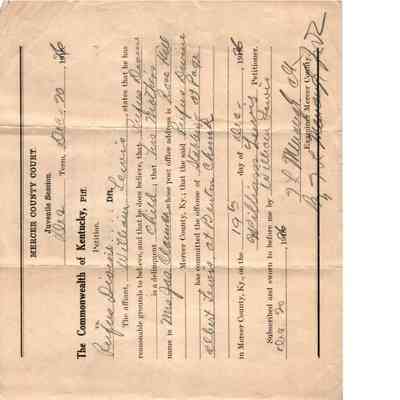 MERCER COUNTY COURT.
Juvenile Session.
Dec Term, Dec. 20 1926
The Commonwealth of Kentucky, Plf.
vs. Petition.
Rufus Divine Dft.
The affiant, William Lewis states that he has
reasonable grounds to believe, and that he does believe, that Rufus Divine
is a delinquent child, that his Mother's
name is Mrs. Ida whose post office address is
Mercer County, Ky.; that the said Rufus Divine
has committed the offense of at
Albert Lewis at Benton Church
in Mercer County, Ky., on the 19th day of Dec. 1926
William Lewis Petitioner.
Subscribed and sworn to before me by William Lewis
Dec 20 1926
Examiner Mercer County.